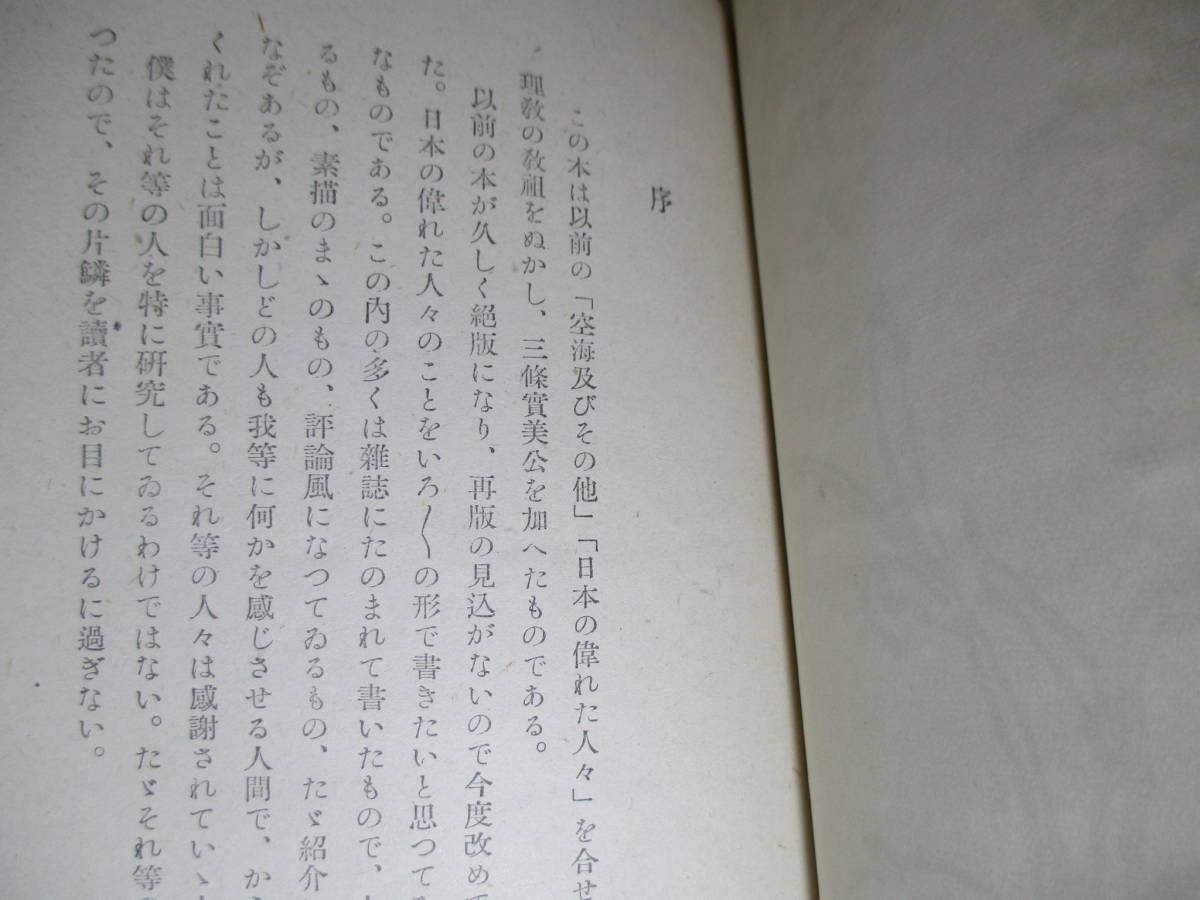 序
この本は以前の「空海及びその他」「日本の偉れた人々」を合せ
理教の教祖をぬかし、三條實美公を加へたものである。
以前の本が久しく絶版になり、再版の見込がないので今度改めて
た。日本の偉れた人々のことをいろ〳〵の形で書きたいと思つてゐ
なものである。この內の多くは雜誌にたのまれて書いたもので、
るもの、素描のまゝのもの、評論風になつてゐるもの、たゞ紹介
なぞあるが、しかしどの人も我等に何かを感じさせる人間で、か
くれたことは面白い事實である。それ等の人々は感謝されていゝ
僕はそれ等の人を特に硏究してゐるわけではない。たゞそれ等の
つたので、その片鱗を讀者にお目にかけるに過ぎない。